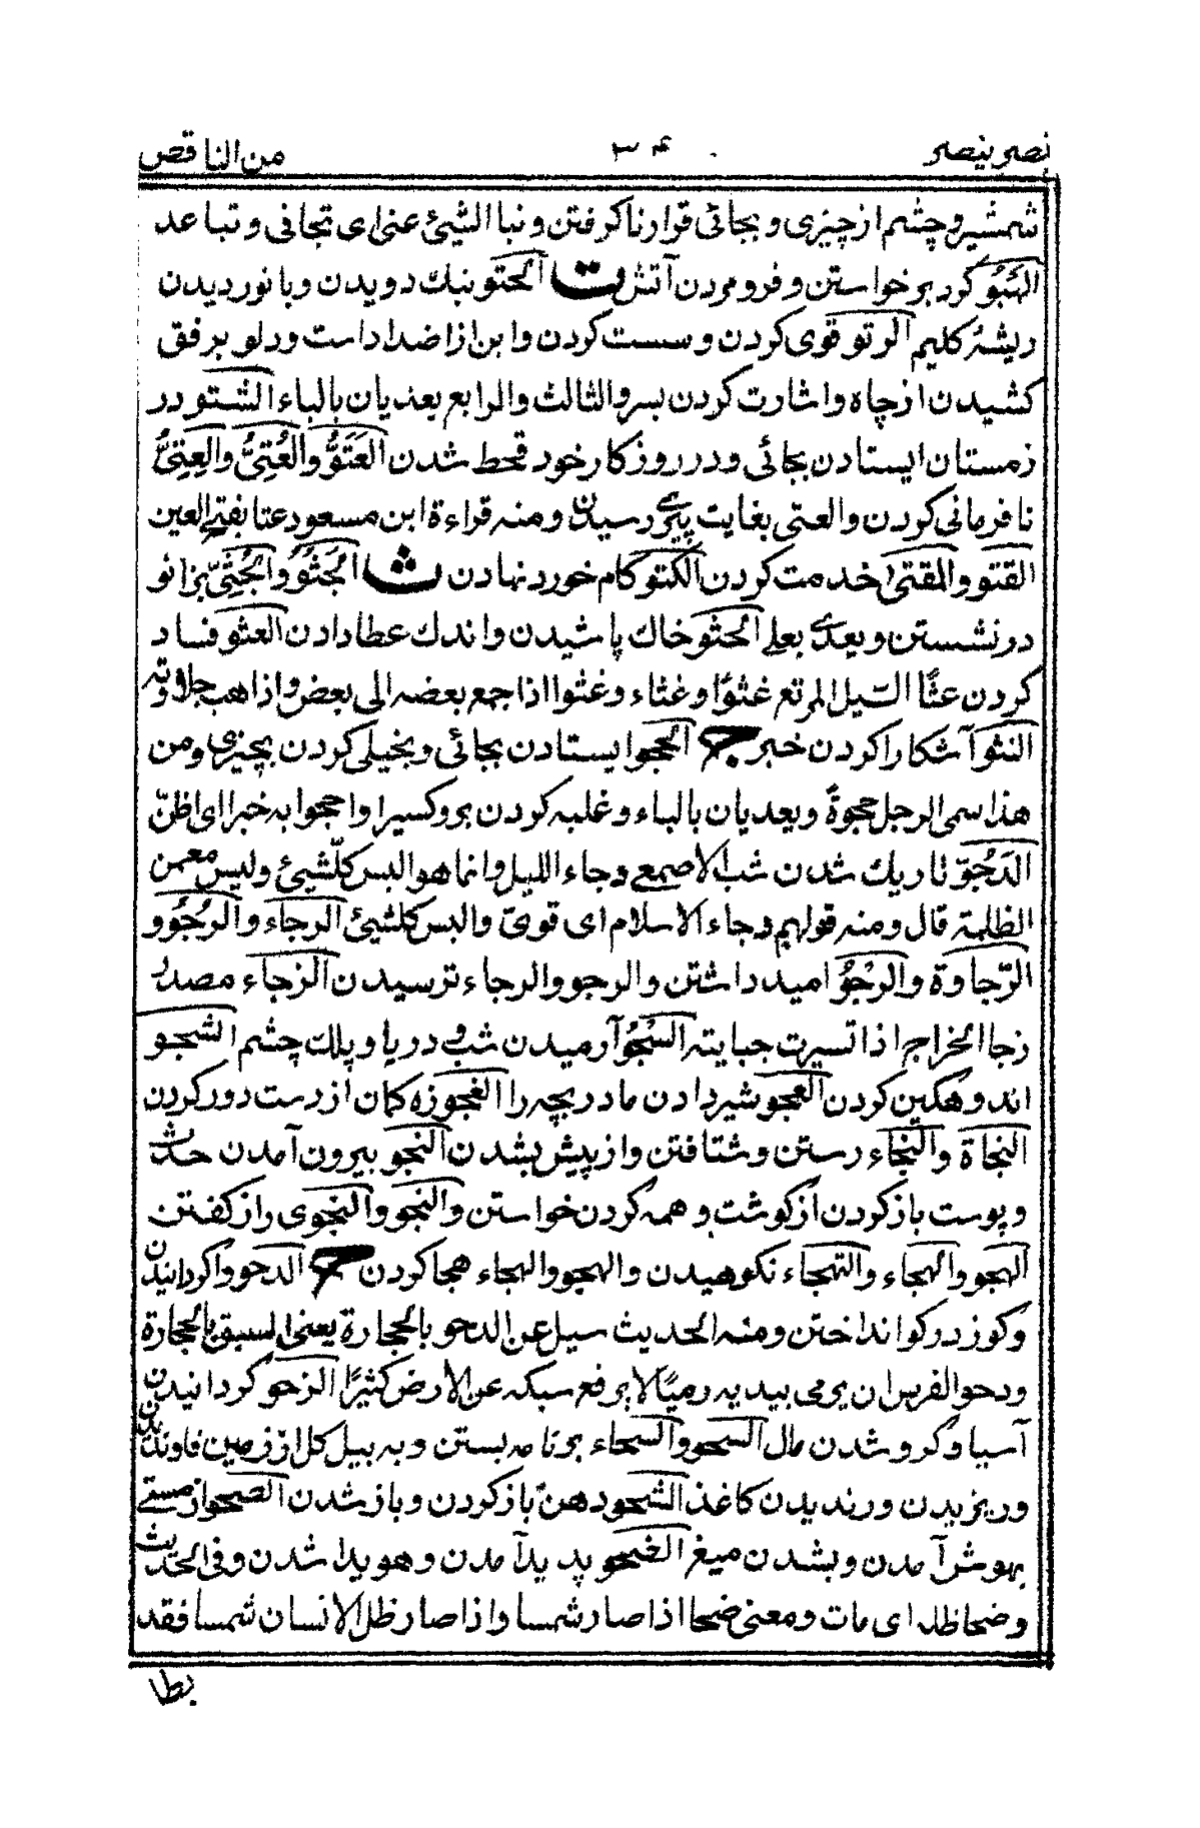 نصر ينصر ۳۴ من الناقص
شمشیر و چشم از چیزی و بجائی قرار ناگرفتن و نبا الشیئ عنی ای تجافی و تباعد
الهَبُوّ گرد برخواستن و فرو مردن آتش ت الحتو نبك دویدن و با نوردیدن
ریشهٔ گلیم الرتو قوی کردن و سست کردن و این از اضداد است و دلو برفق
کشیدن از چاه و اشارت کردن بسر و الثالث و الرابع یعدیان بالباء الشتو در
زمستان ایستادن بجائی و در روزکار خود قحط شدن العَتَوُّ والعُتِیُّ والعِتِیُّ
نافرمانی کردن و العتی بغایت پیری رسیدن و منه قراءة ابن مسعود عتا بفتح العین
القتو و المقتی خدمت کردن الکتو کام خورد نهادن ث الجُثُوُّ والجُثِیّ بزانو
در نشستن و یعدی بعلی الحثو خاك پاشیدن و اندك عطا دادن العثو فساد
کردن عثًّا السّیل المرتع غثوًا و غثاء و غثوا اذا جمع بعضه الی بعض و اذا هب حلاوته
النثو آشکارا کردن خبر ج الحجو ایستادن بجائی و بخیلی کردن بچیزی و من
هذا سمی الرجل حجوةً و یعدیان بالباء و غلبه کردن بر و کسیرا و احجوا به خبرا ای ظنّ
الدَجُوّ تاریك شدن شب الاصمعی دجاء اللیل و انما هو البس کلّ شیئ و لیس معمن
الظلمة قال و منه قولهم دجاء الاسلام ای قوی و البس کل شیئ الرجاء و الرُجُوّ و
الرّجاوة و الرَجْوُ امید داشتن و الرجو و الرجاء ترسیدن الزجاء مصدر
زجا الخراج اذا تسیرت جبایته السُجُوّ آرمیدن شب و دریا و پلك چشم الشجو
اندوهگین کردن العجو شیر دادن مادر بچه را الغجو زه کمان از دست دور کردن
النجاة و النجاء رستن و شتافتن و از پیش بشدن النجو بیرون آمدن حدث
و پوست باز کردن از گوشت و همه کردن خواستن و النجو و النجوی راز گفتن
الهجو و الهجاء و التهجاء نکوهیدن و الهجو و الهجاء هجا کردن ح الدحو واگردانیدن
و گوز در گو انداختن و منه الحدیث سیل عن الدحو بالحجارة یعنی السبق بالحجارة
و دحو الفرس ان یرمی بیدیه رمیًا لا یرفع سبکه عن الارض کثیرًا الزحو گردانیدن
آسیا و گرو شدن مال السحو و السحاء بر نامه بستن و به بیل گل از زمین فاوندیدن
و ریزیدن و رندیدن کاغذ الشحو دهن باز کردن و باز شدن الصحو از مستی
بهوش آمدن و بشدن میغ الضحو پدید آمدن و هویدا شدن و فی الحدیث
و ضحا ظله ای مات و معنی ضحا اذا صار شمسا و اذا صار ظل الانسان شمسا فقد
بطا